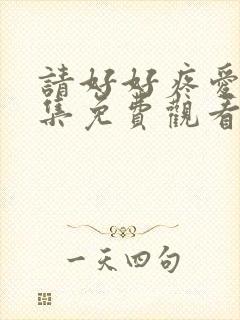 請好好疼愛
集免費觀看
一天四句